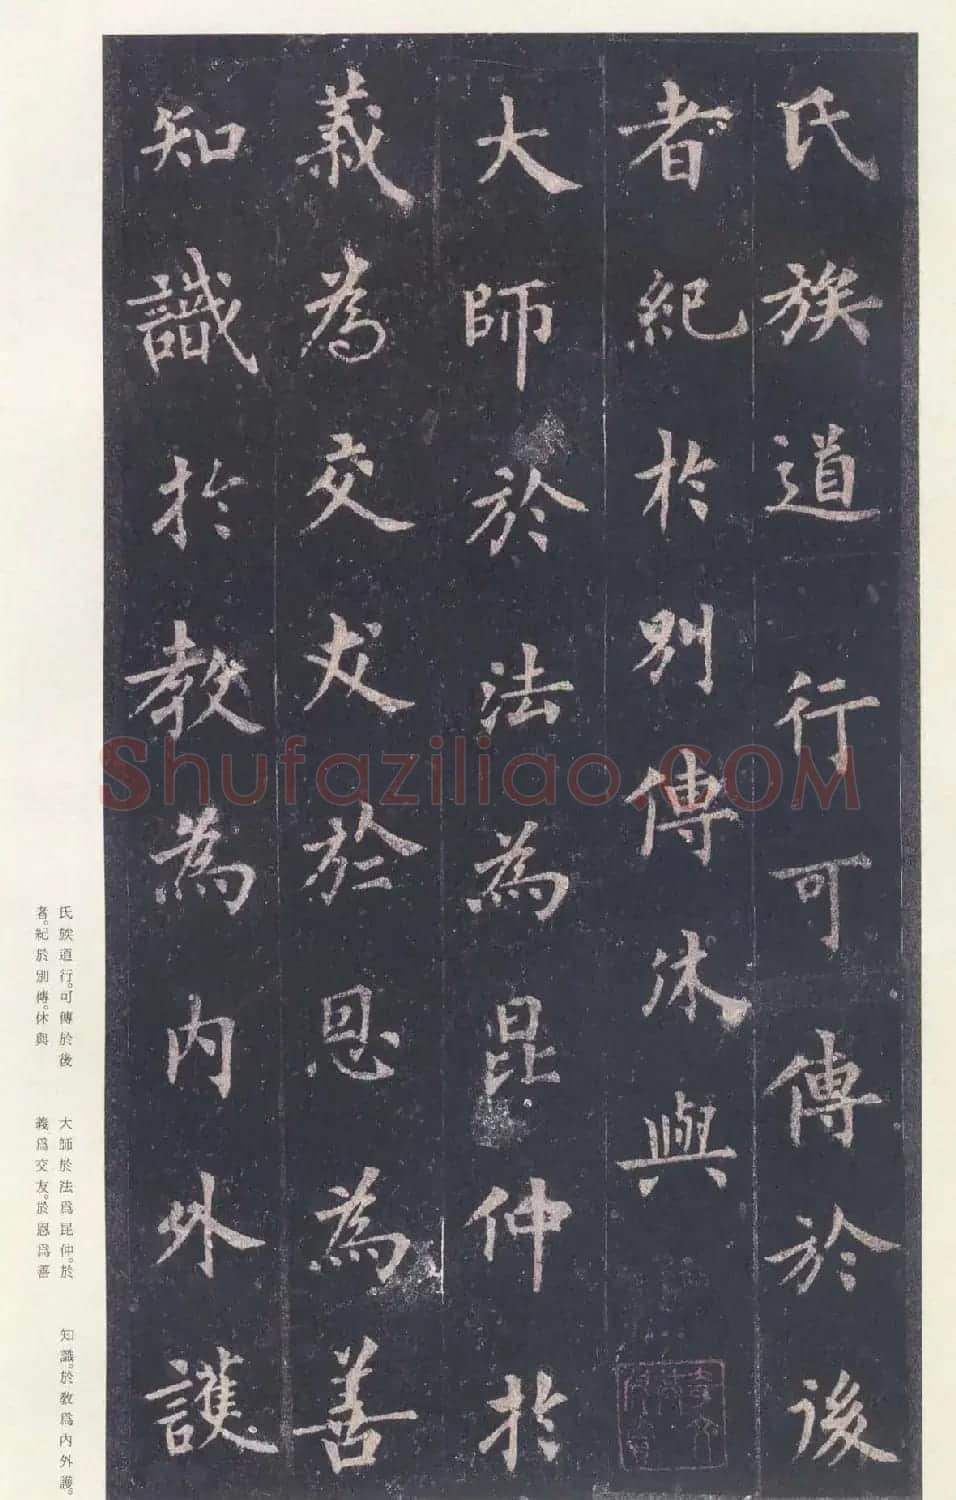 氏族道行可傳於後
者紀於別傳休與
大師於法為昆仲於
義為交友於恩為善
知識於教為內外護
Shufaziliao.COM
氏族道行。可傳於後
者。紀於別傳。休與
大師於法爲昆仲。於
義爲交友。於恩爲善
知識。於教爲內外護。